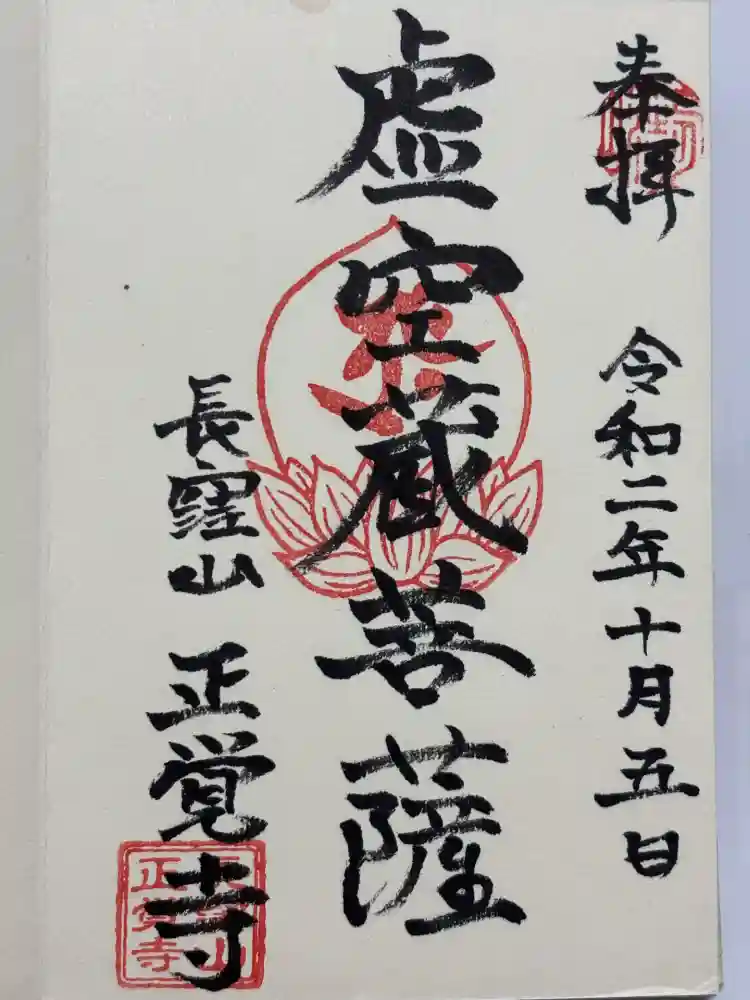 奉拝
令和二年十月五日
虚空蔵菩薩
長窪山 正覚寺
正覚寺